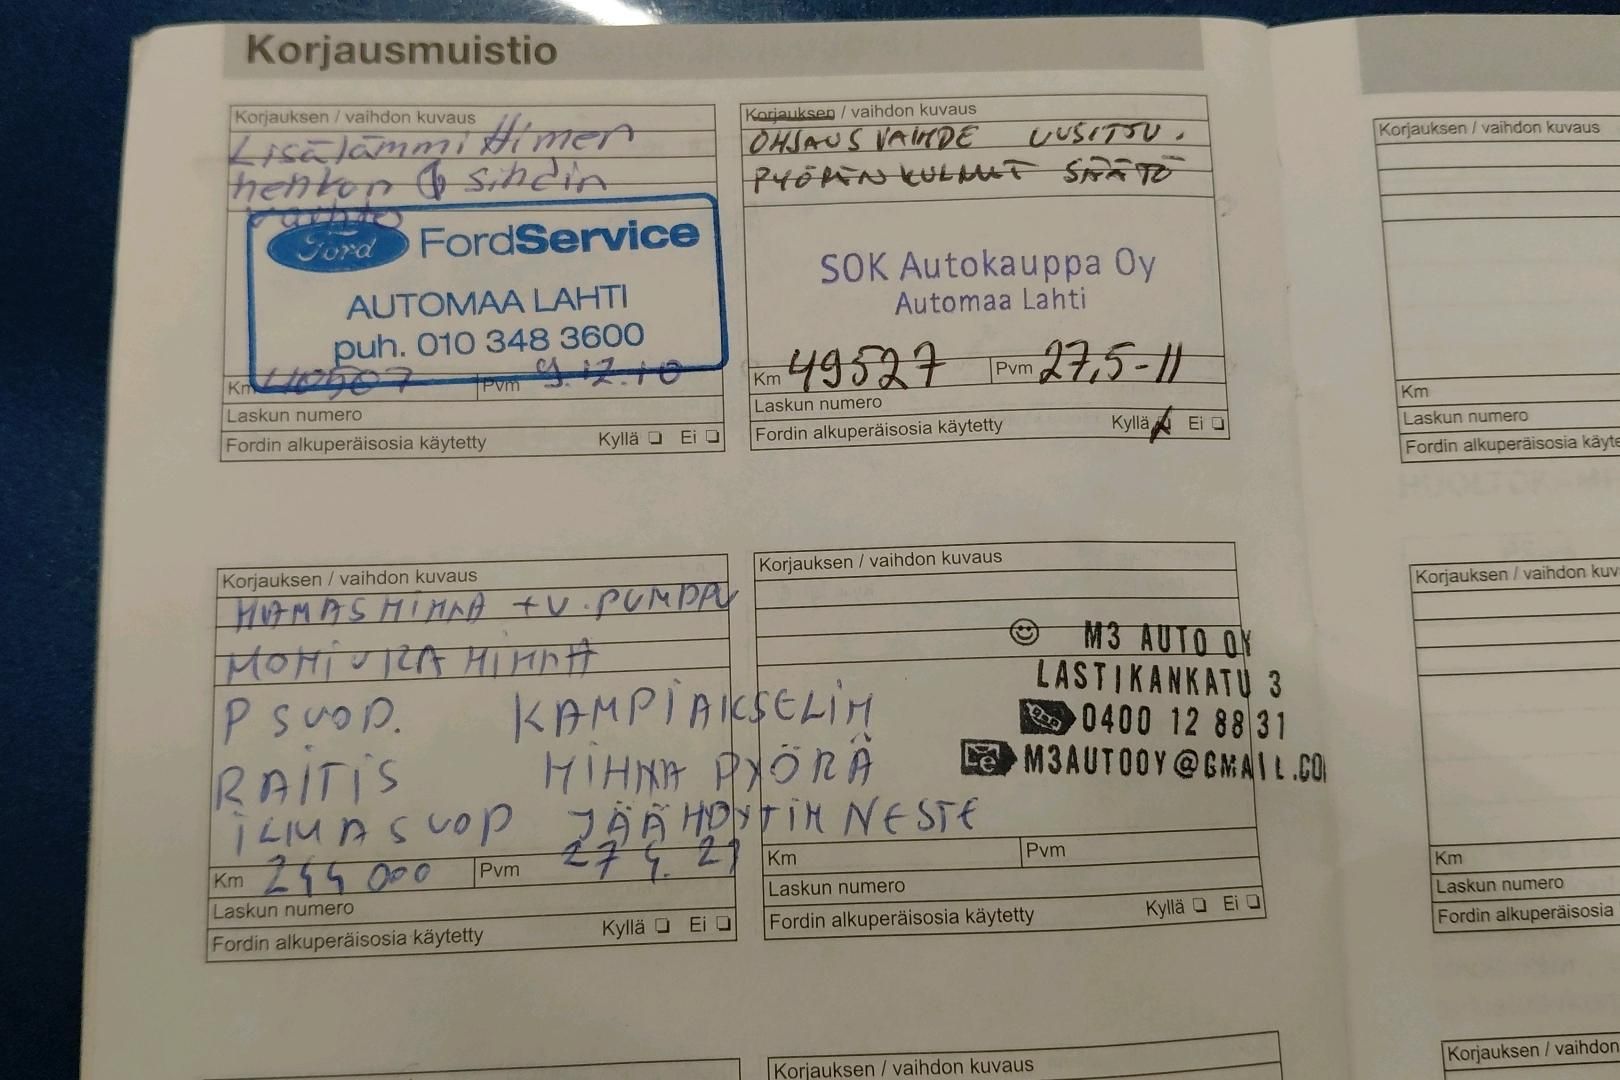 Korjausmuistio
Korjauksen / vaihdon kuvaus
Lisälämmittimen
hehkun & sihdin
vaihto
Ford FordService
AUTOMAA LAHTI
puh. 010 348 3600
Km 40507 Pvm 9.12.10
Laskun numero
Fordin alkuperäisosia käytetty Kyllä Ei
Korjauksen / vaihdon kuvaus
OHJAUSVAIHDE UUSITTU.
PYÖRÄNKULMAT SÄÄTÖ
SOK Autokauppa Oy
Automaa Lahti
Km 49527 Pvm 27,5-11
Laskun numero
Fordin alkuperäisosia käytetty Kyllä Ei
Korjauksen / vaihdon kuvaus
HAMASHIHNA + V. PUMPPU
MONIURA HIHNA
P SUOD. KAMPIAKSELIN
RAITIS HIHNA PYÖRÄ
ILMASUOD JÄÄHDYTIN NESTE
Km 244 000 Pvm 27 4. 21
Laskun numero
Fordin alkuperäisosia käytetty Kyllä Ei
Korjauksen / vaihdon kuvaus
M3 AUTO OY
LASTIKANKATU 3
0400 12 88 31
M3AUTOOY@GMAIL.CO
Km Pvm
Laskun numero
Fordin alkuperäisosia käytetty Kyllä Ei
Korjauksen / vaihdon kuvaus
Korjauksen / vaihdon kuvaus
Km
Laskun numero
Fordin alkuperäisosia käyte
Korjauksen / vaihdon kuv
Km
Laskun numero
Fordin alkuperäisosia
Korjauksen / vaihdon